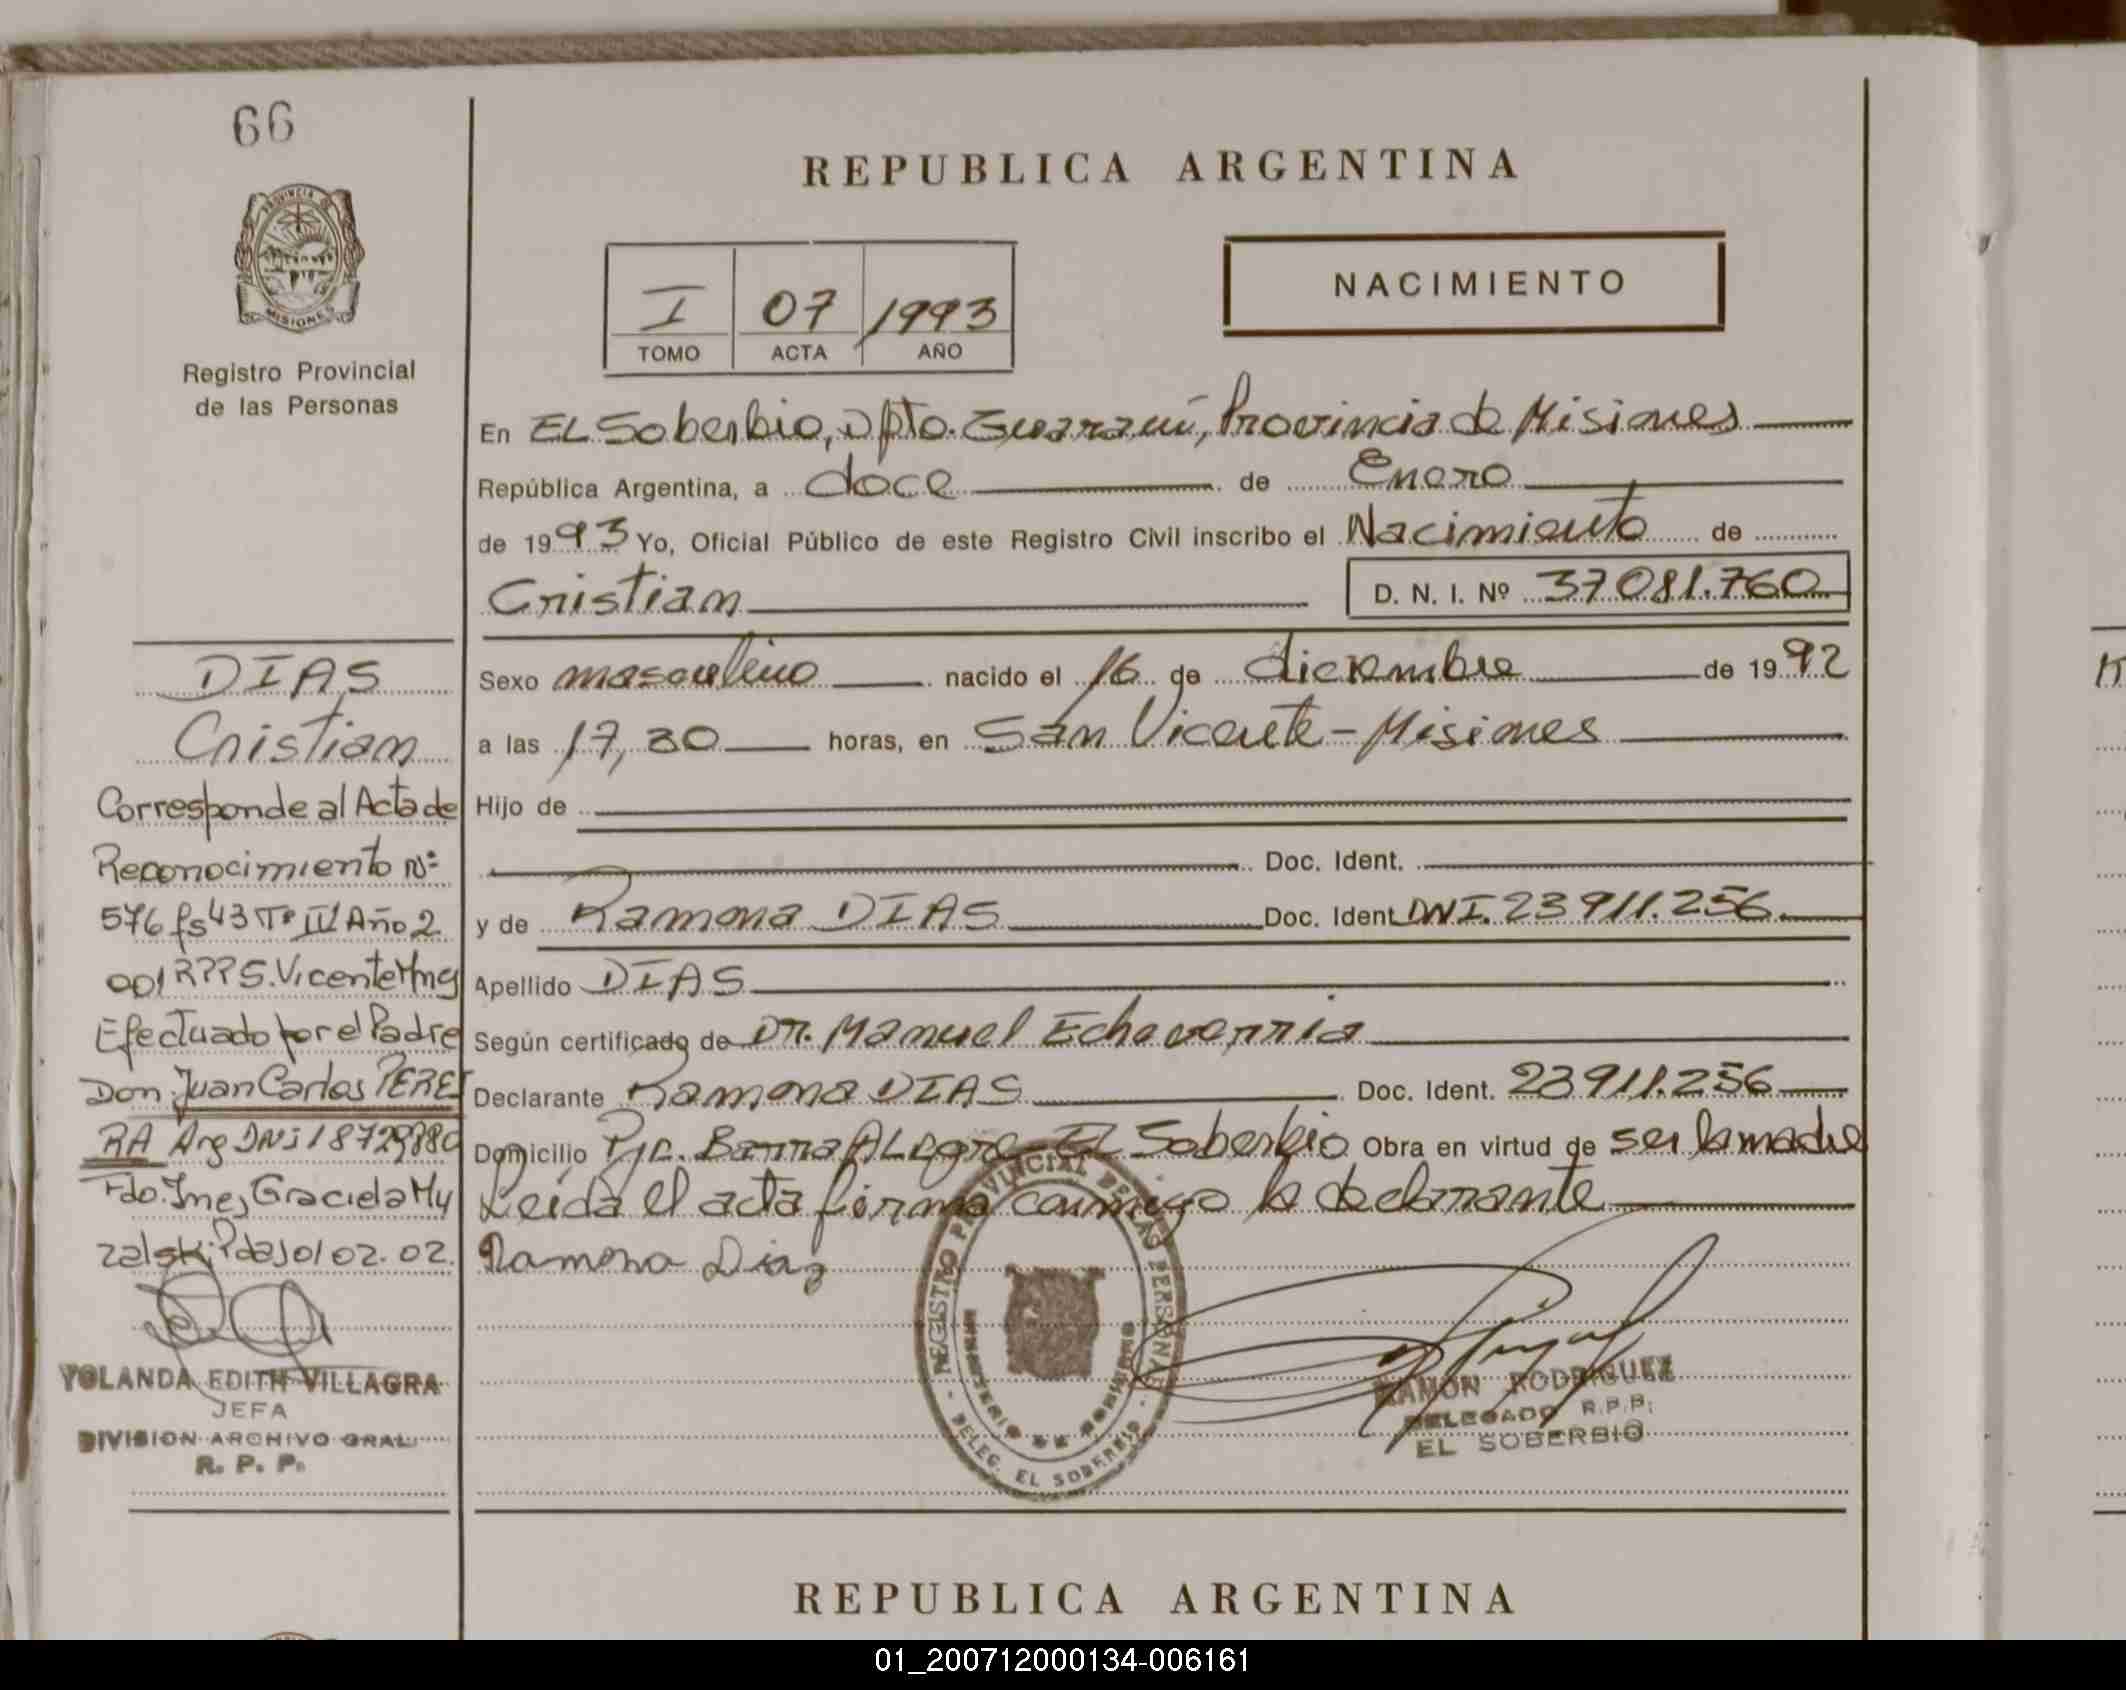 66
PROVINCIA DE
MISIONES
Registro Provincial
de las Personas
DIAS
Cristian
Corresponde al Acta de
Reconocimiento Nº
576 fs 43 Tº III Año 2
001 RPP S. Vicente Mnes
Efectuado por el Padre
Don Juan Carlos PEREI
RA Arg DNi 18729880
Fdo. Ines Graciela My
zalski Pdas 01 02. 02.
YOLANDA EDITH VILLAGRA
JEFA
DIVISION ARCHIVO GRAL.
R. P. P.
REPUBLICA ARGENTINA
I 07 1993
TOMO ACTA AÑO
NACIMIENTO
En EL Soberbio, Dpto. Guaraní, Provincia de Misiones
República Argentina, a doce de Enero
de 1993 Yo, Oficial Público de este Registro Civil inscribo el Nacimiento de
Cristian D. N. I. Nº 37081.760
Sexo masculino nacido el 16 de diciembre de 1992
a las 17,30 horas, en San Vicente - Misiones
Hijo de
Doc. Ident.
y de Ramona DIAS Doc. Ident. DNI. 23911.256
Apellido DIAS
Según certificado de Dr. Manuel Echeverria
Declarante Ramona DIAS Doc. Ident. 23911.256
Domicilio Pje. Barra ALegre EL Soberbio Obra en virtud de ser la madre
Leída el acta firma conmigo la declarante
Ramona Diaz
REGISTRO PROVINCIAL DE LAS PERSONAS
MINISTERIO DE GOBIERNO
- DELEG. EL SOBERBIO -
RAMON RODRIGUEZ
DELEGADO R.P.P.
EL SOBERBIO
REPUBLICA ARGENTINA
01_200712000134-006161